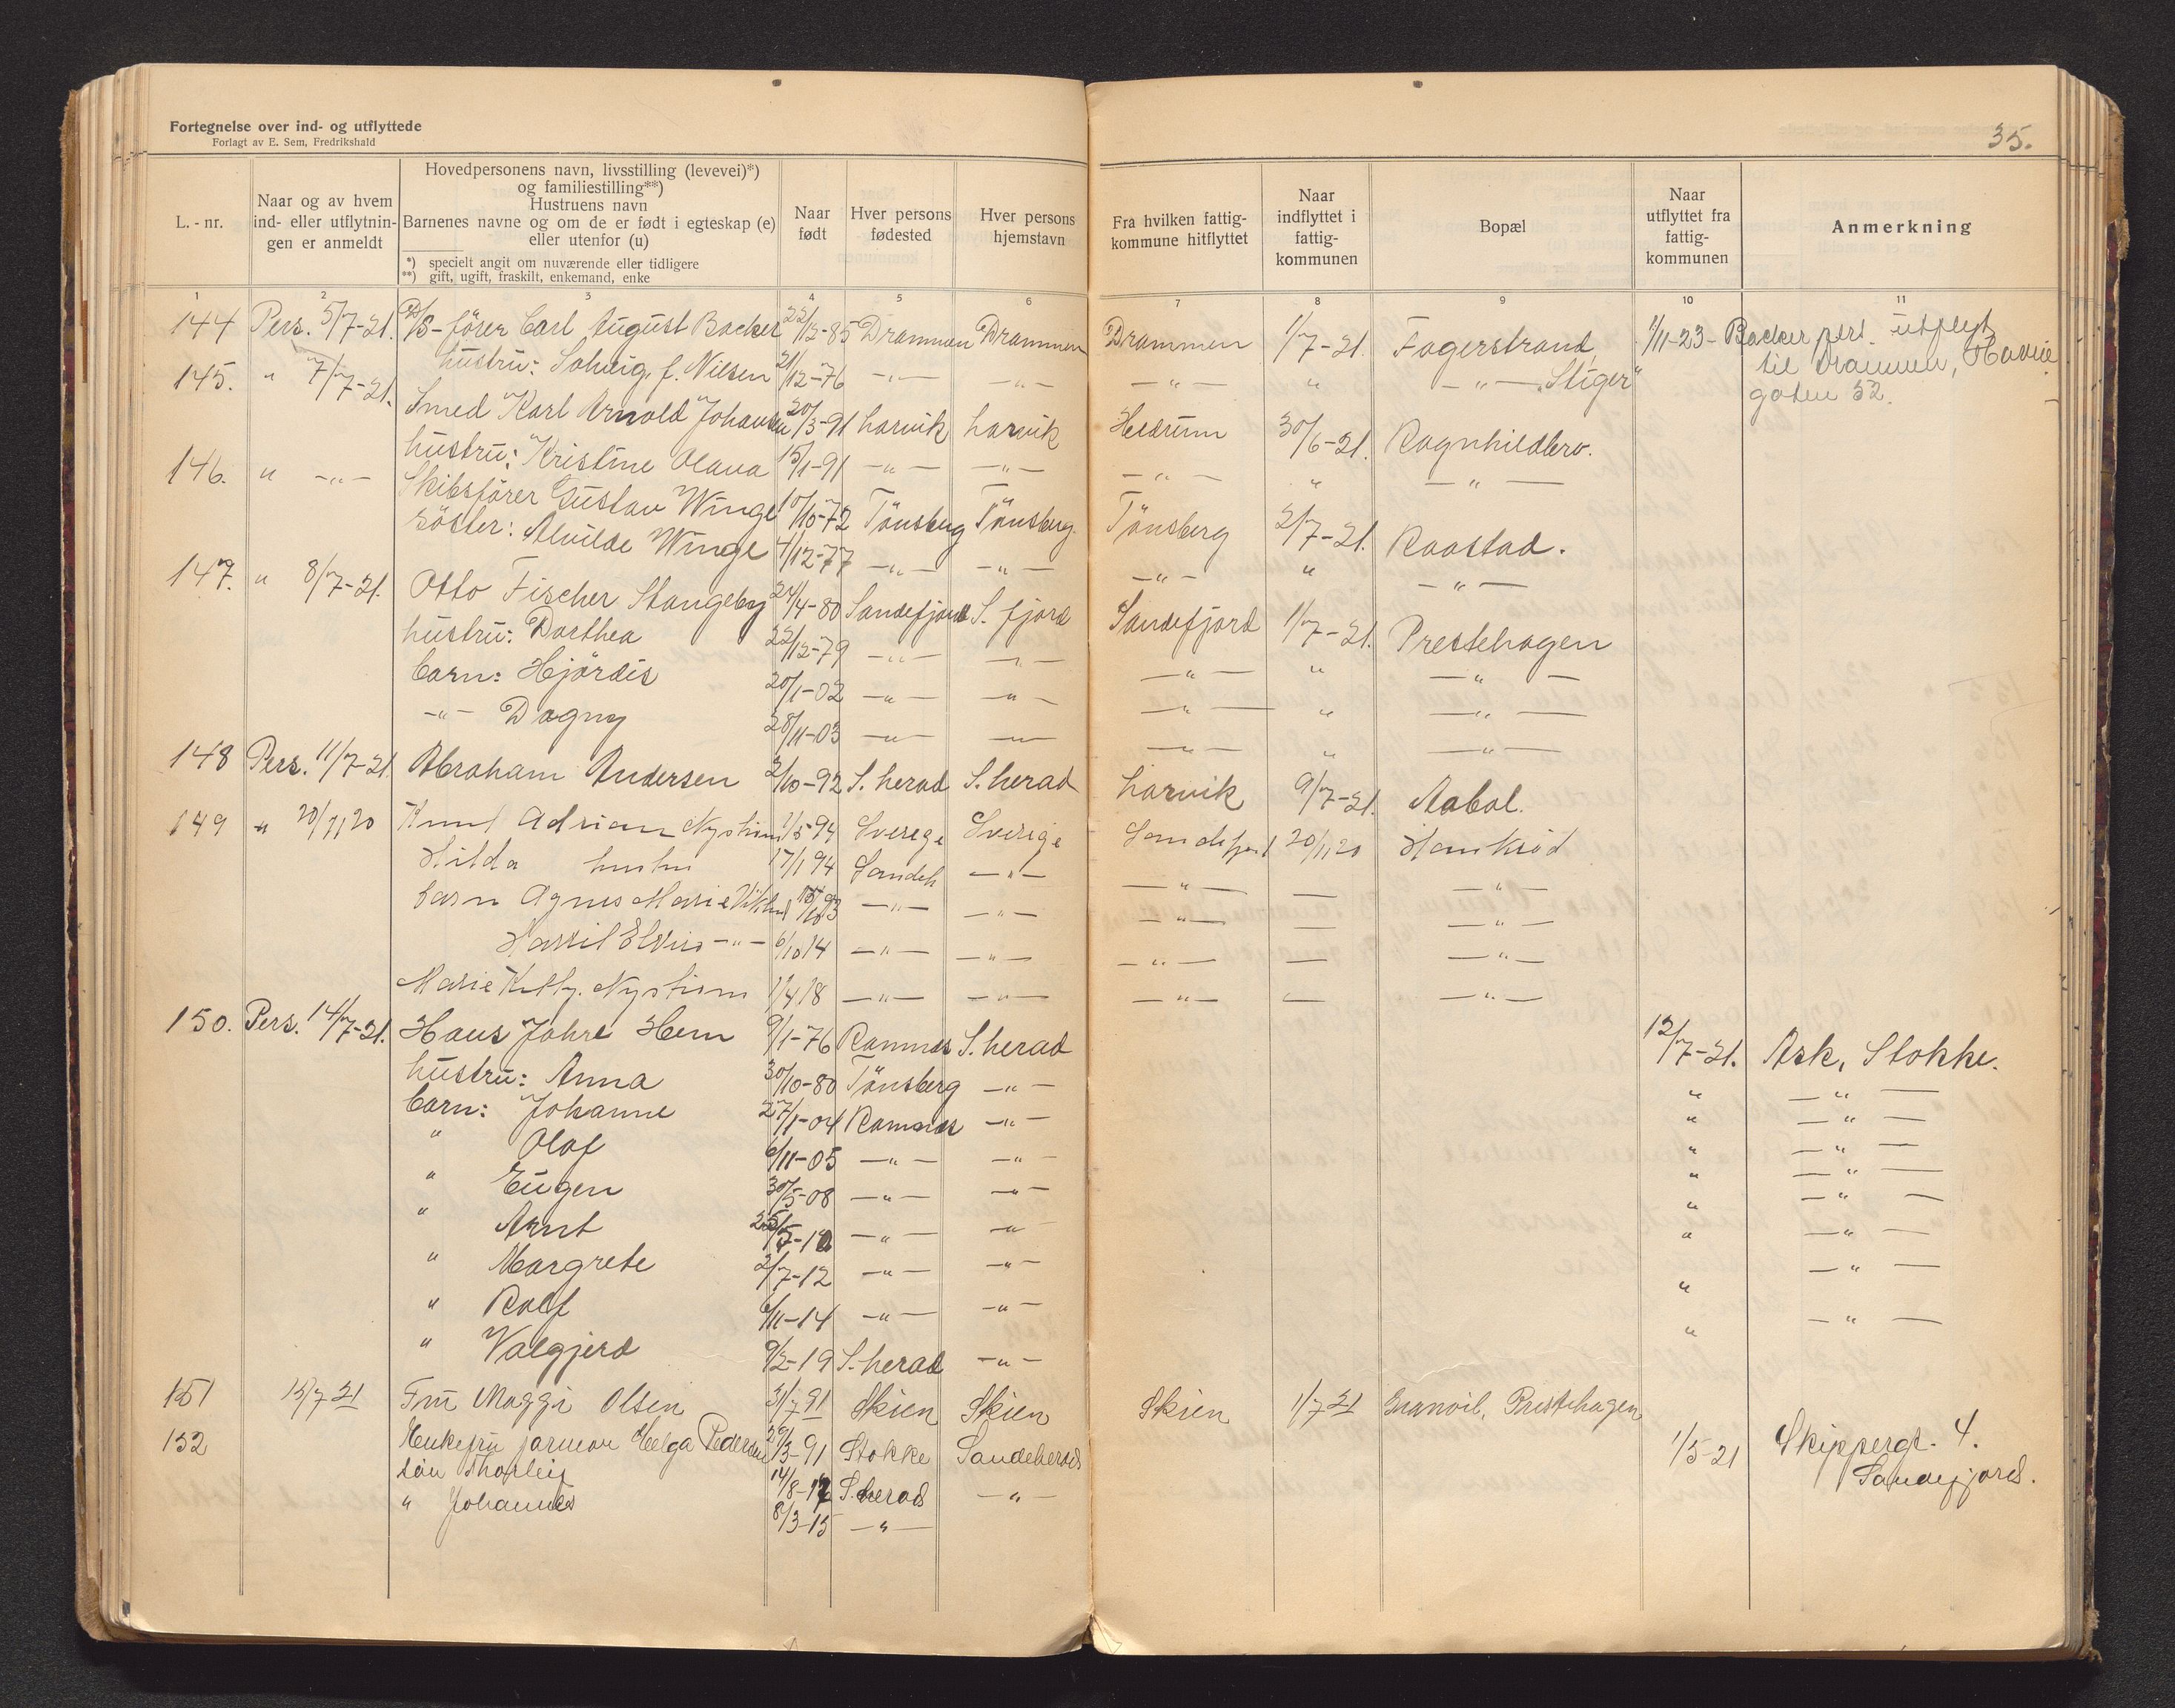 Fortegnelse over ind- og utflyttede
Forlagt av E. Sem, Fredrikshald
35.
L.-nr.
Naar og av hvem ind- eller utflytnin-gen er anmeldt
Hovedpersonens navn, livsstilling (levevei)*)
og familiestilling**)
Hustruens navn
Barnenes navne og om de er født i egteskap (e)
eller utenfor (u)
*) specielt angit om nuværende eller tidligere
**) gift, ugift, fraskilt, enkemand, enke
Naar født
Hver persons fødested
Hver persons hjemstavn
Fra hvilken fattig-kommune hitflyttet
Naar indflyttet i fattig-kommunen
Bopæl
Naar utflyttet fra fattig-kommunen
Anmerkning
1 2 3 4 5 6 7 8 9 10 11
144 Pers. 5/7-21. D/S-förer Carl August Backer 22/12-85 Drammen Drammen Drammen 1/7-21. Fagerstrand, 1/11-23- Backer pers. utflyt
hustru: Solveig, f. Nilsen 21/12-76 -"- -"- -"- " -"- "Stiger" til Drammen,
gaten 52.
145. " 7/7-21. Smed Karl Arnold Johansen 20/3-91 Larvik Larvik Hedrum 30/6-21. Ragnhildbro.
hustru: Kristine Olava 15/1-91 -"- -"- -"- " -"-
146. " -"- Skibsförer Gustav Winge 10/10-72 Tönsberg Tönsberg. Tönsberg 2/7-21. Raastad.
söster: Alvilde Winge 4/12-77 -"- -"- -"- " -"-
147. " 8/7-21. Otto Fischer Stangeby 24/4-80 Sandefjord S. fjord Sandefjord 1/7-21. Prestehagen
hustru: Dorthea 22/12-79 -"- -"- -"- " -"-
barn: Hjördis 20/1-02 -"- -"- -"- " -"-
-"- Dagny 28/11-03 -"- -"- -"- " -"-
148 Pers. 11/7-21. Abraham Andersen 2/10-92 S. herad S. herad Larvik 9/7-21. Aabol.
149 " 20/11 20 Knut Adrian Nystrøm 1/5-94 Sverege Sverige Sandefjord 20/11 20 Hauksrød
Hilda hustru 17/1 94 Sandeh -"- -"- — -"-
barn Agnes Marie -"- -"- -"- — -"-
-"- 6/10 14 -"- -"- -"- — -"-
Marie Nystrøm 1/4 18 -"- -"- -"- — -"-
150. Pers. 14/7-21. Hans Jahre Hem 9/1-76 Ramnes S. herad 12/7-21. Ask, Stokke.
hustru: Anna 30/10-80 Tönsberg -"- " -"-
barn: Johanne 27/1-04 Ramnes -"- " -"-
" Olaf 6/11-05 -"- -"- " -"-
" Eugen 30/5-08 -"- -"- " -"-
" Arnt 25/5-10 -"- -"- " -"-
" Margrete 2/7-12 -"- -"- " -"-
" Rolf 6/11-14 -"- -"- " -"-
" Valgjerd 9/2-19 S. herad -"- " -"-
151 15/7 21 Fru Maggi Olsen 31/7 91 Skien Skien Skien 1/7 21 Granvil, Prestehagen
152 Enkefru Helga Pedersen 29/3-91 Stokke Sandeherad 1/5-21 Skippergt. 4.
sön Thorleif 14/8-12 S. herad -"- Sandefjord.
" Johannes 8/3-15 -"-